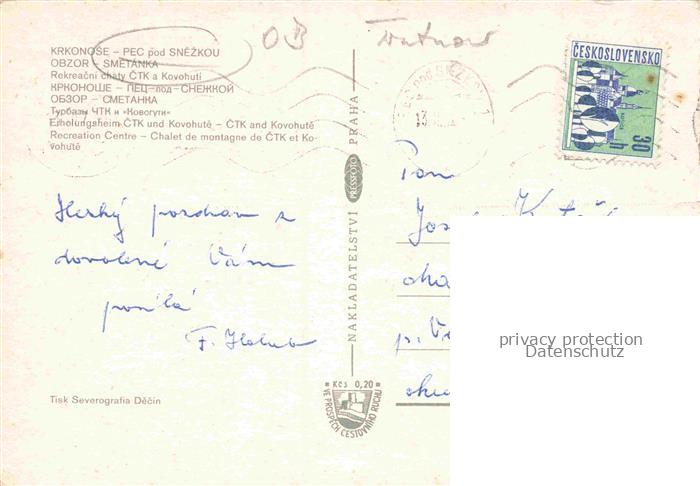 OB Trutnov
KRKONOŠE – PEC pod SNĚŽKOU
OBZOR – SMETÁNKA
Rekreační chaty ČTK a Kovohutí
КРКОНОШЕ – ПЕЦ-под-СНЕЖКОЙ
ОБЗОР – СМЕТАНКА
Турбазы ЧТК и «Ковогути»
Erholungsheim ČTK und Kovohutě – ČTK and Kovohutě
Recreation Centre – Chalet de montagne de ČTK et Ko-
vohutě
Hezký pozdrav z
dovolené Vám
posílá
F. Holub
Tisk Severografia Děčín
NAKLADATELSTVÍ PRESSFOTO PRAHA
Kčs 0,20
VE PROSPĚCH CESTOVNÍHO RUCHU
ČESKOSLOVENSKO
30 h
Pan
privacy protection
Datenschutz